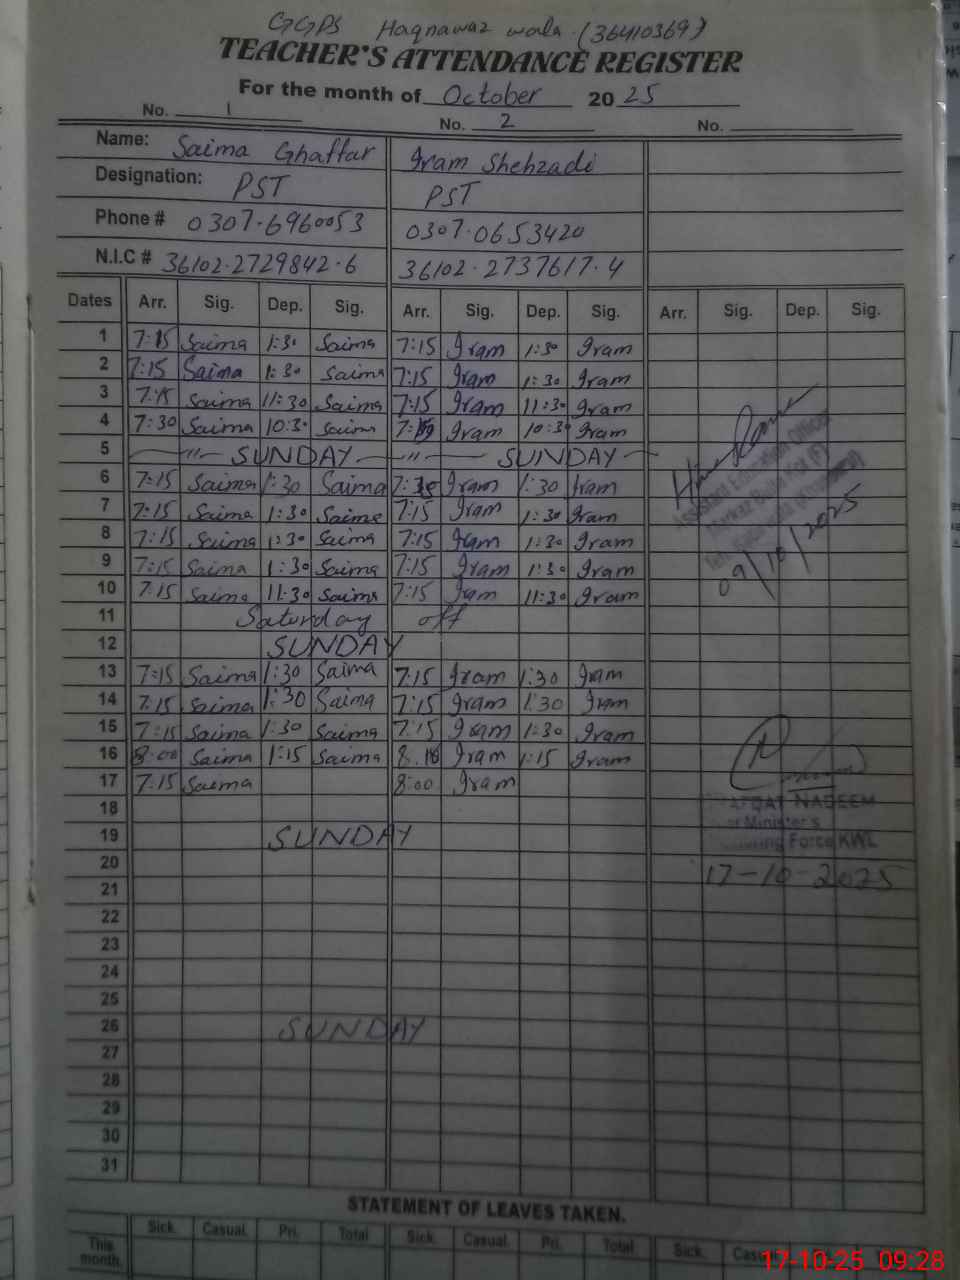 GGPS Haqnawaz wala (36410369)
TEACHER'S ATTENDANCE REGISTER
For the month of October 2025
No. 1 No. 2 No.
Name: Saima Ghaffar Iram Shehzadi
Designation: PST PST
Phone # 0307-6960053 0307-0653420
N.I.C # 36102-2729842-6 36102-2737617-4
Dates Arr. Sig. Dep. Sig. Arr. Sig. Dep. Sig. Arr. Sig. Dep. Sig.
1 7:15 Saima 1:30 Saima 7:15 Iram 1:30 Iram
2 7:15 Saima 1:30 Saima 7:15 Iram 1:30 Iram
3 7:15 Saima 11:30 Saima 7:15 Iram 11:30 Iram
4 7:30 Saima 10:30 Saima Iram 10:30 Iram
5 —〃— SUNDAY —〃— SUNDAY —
6 7:15 Saima 1:30 Saima Iram 1:30 Iram
7 7:15 Saima 1:30 Saima 7:15 Iram 1:30 Iram
8 7:15 Saima 1:30 Saima 7:15 Iram 1:30 Iram
9 7:15 Saima 1:30 Saima 7:15 Iram 1:30 Iram
10 7:15 Saima 11:30 Saima 7:15 Iram 11:30 Iram
Assistant Education Officer
Markaz
09/10/2025
11 Saturday off
12 SUNDAY
13 7:15 Saima 1:30 Saima 7:15 Iram 1:30 Iram
14 7:15 Saima 1:30 Saima 7:15 Iram 1:30 Iram
15 7:15 Saima 1:30 Saima 7:15 Iram 1:30 Iram
16 8:00 Saima 1:15 Saima Iram 1:15 Iram
17 7:15 Saima 8:00 Iram
18
NADEEM
Minister's
Force KWL
19 SUNDAY
20
17-10-2025
21
22
23
24
25
26 SUNDAY
27
28
29
30
31
STATEMENT OF LEAVES TAKEN.
Sick. Casual. Pri. Total Sick. Casual. Pri. Total Sick.
This month.
17-10-25 09:28